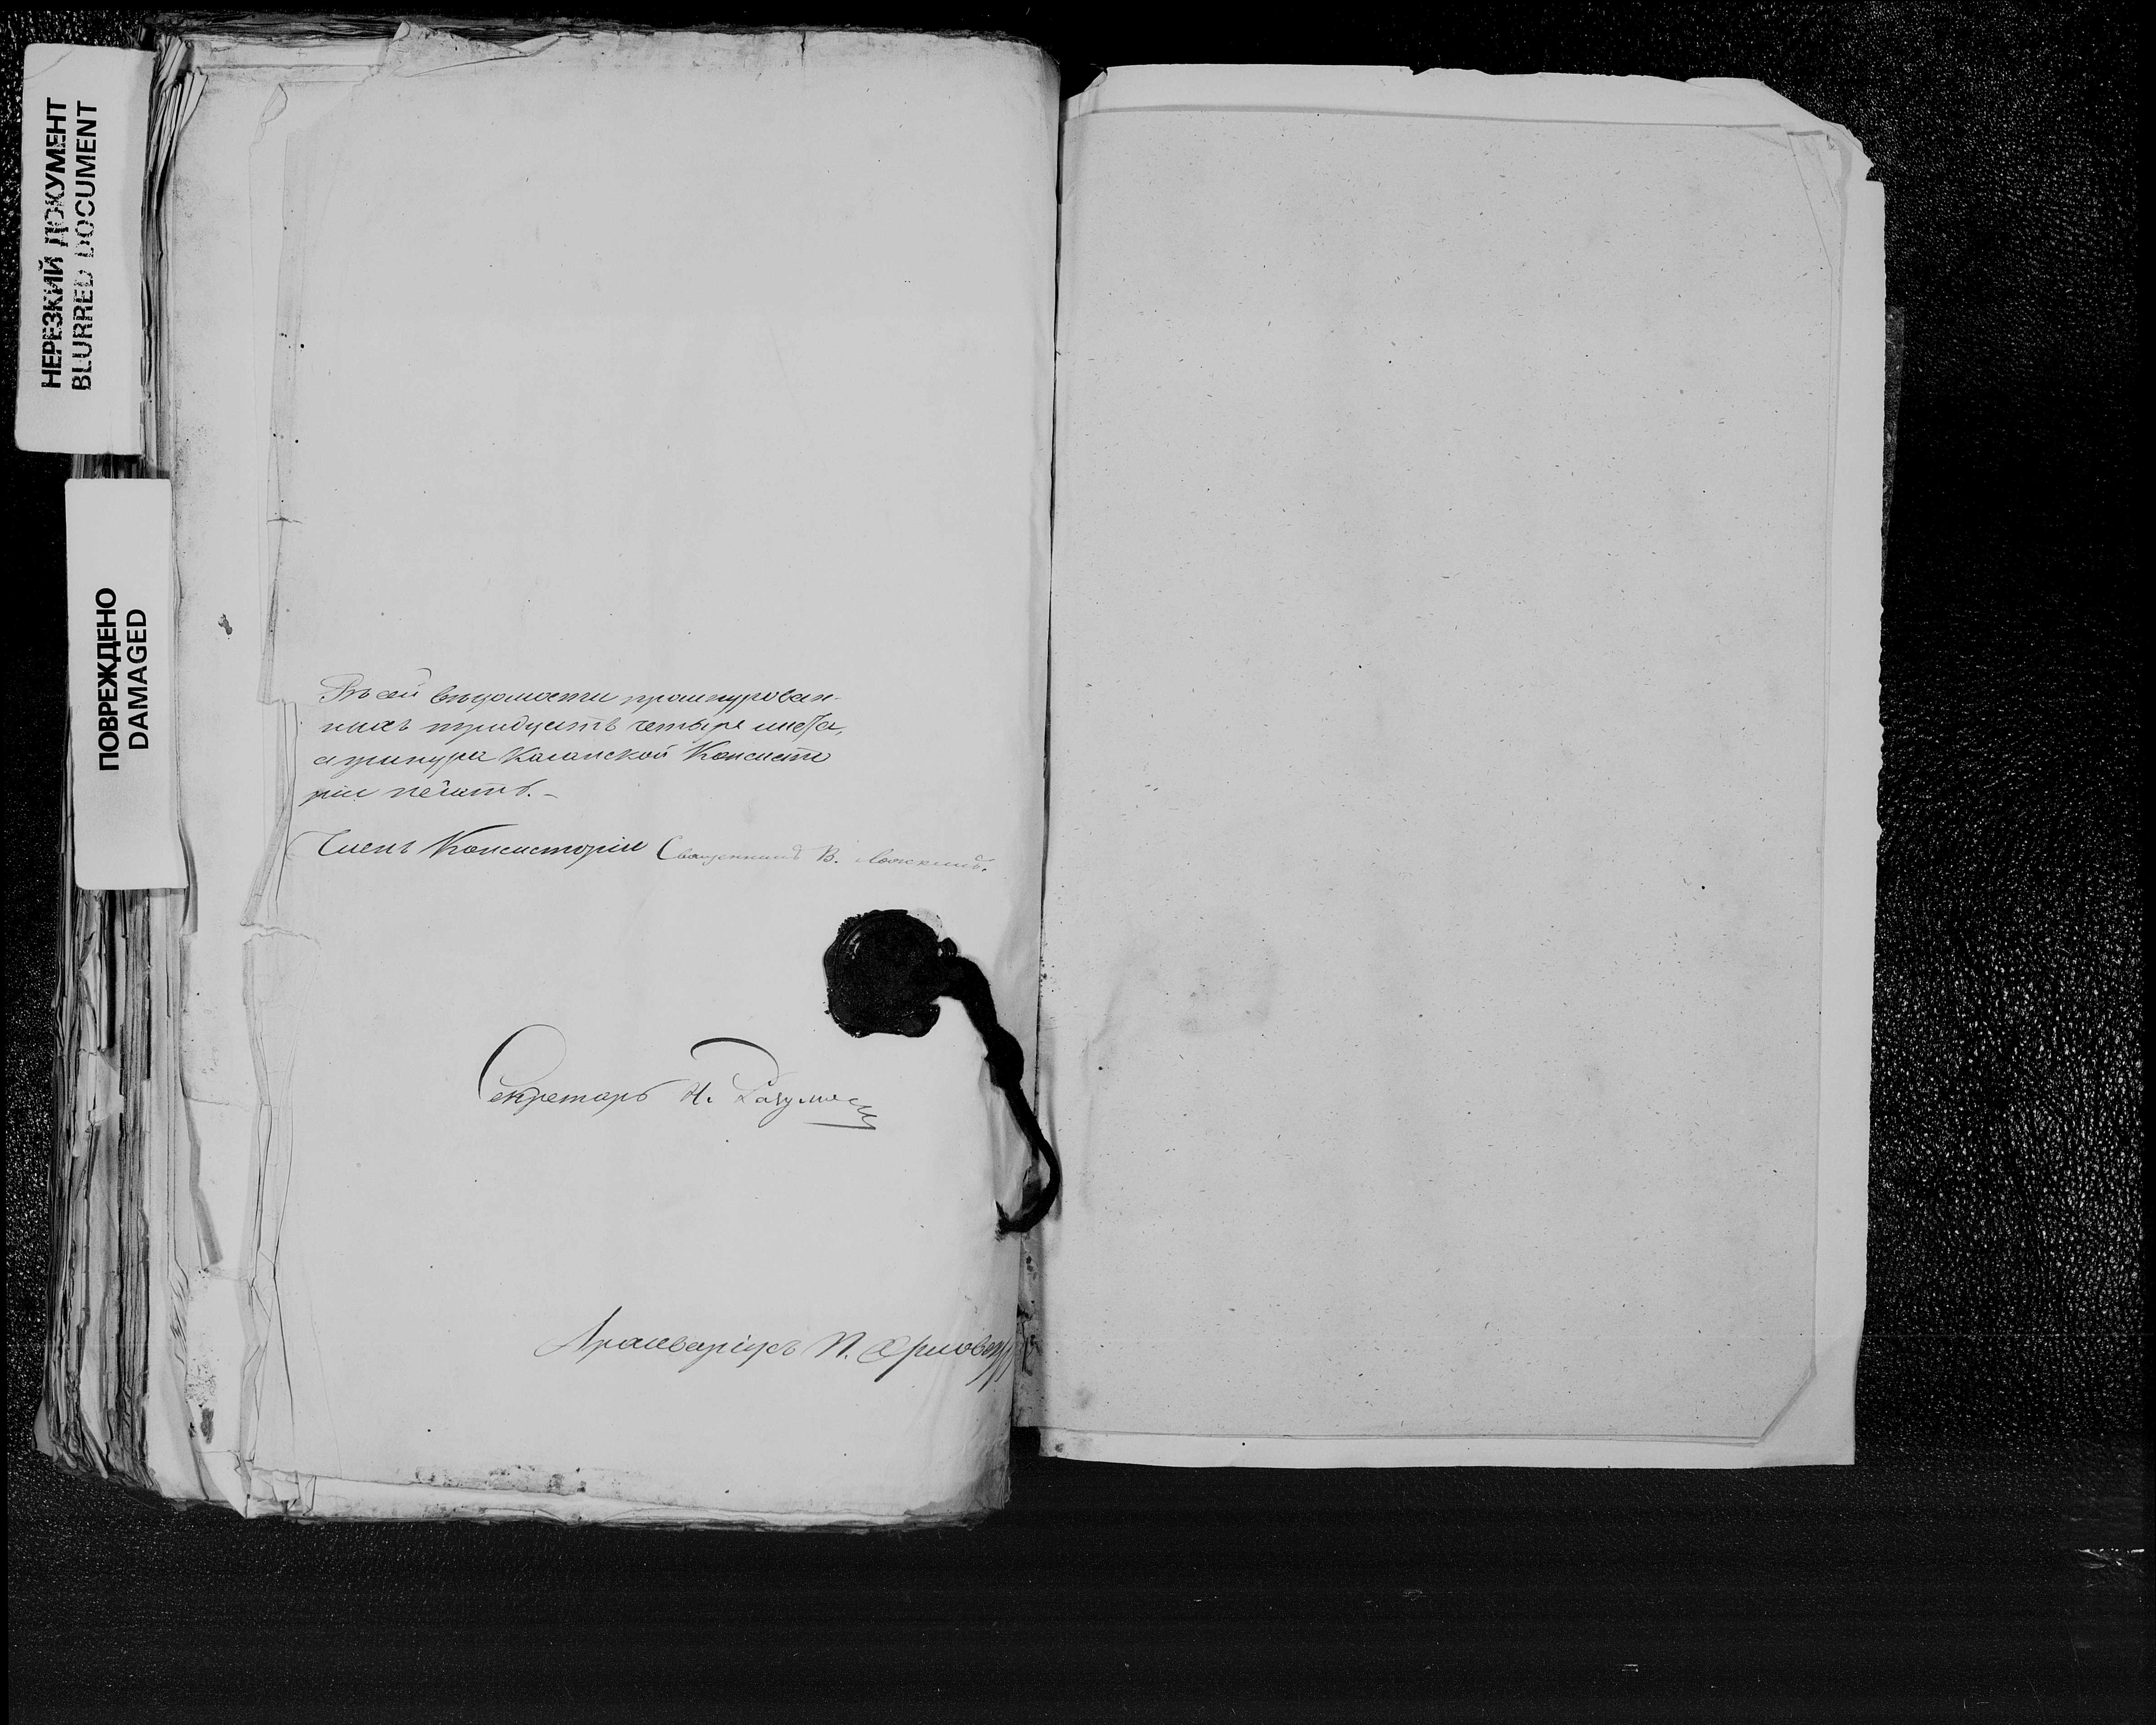 НЕРЕЗКИЙ ДОКУМЕНТ
BLURRED DOCUMENT
ПОВРЕЖДЕНО
DAMAGED
Въ сей вѣдомости прошнурован-
ныхъ тридцать четыре листа,
а у шнура Казанской Консисто
ріи печать.-
Членъ Консисторіи Священникъ В.
Секретарь Н.
Архиваріусъ П. Орловъ